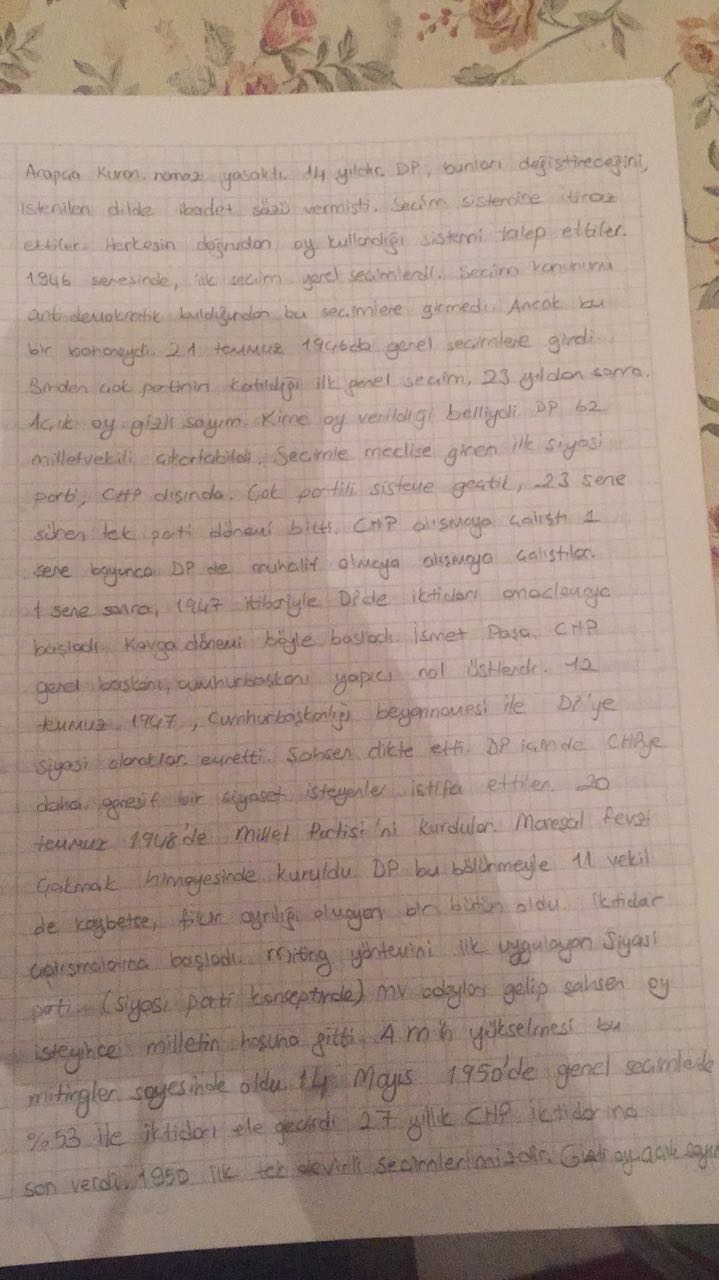 Arapça Kuran, namaz yasaktı. 14 yıldır. DP, bunları değiştireceğini,
istenilen dilde ibadet sözü vermişti. Seçim sistemine itiraz
ettiler. Herkesin doğrudan oy kullandığı sistemi talep ettiler.
1946 senesinde, ilk seçim yerel seçimlerdi. Seçim kanununu
anti demokratik bulduğundan bu seçimlere girmedi. Ancak bu
bir bahaneydi. 21 temmuz 1946da genel seçimlere girdi.
Birden çok partinin katıldığı ilk genel seçim, 23 yıldan sonra.
Açık oy gizli sayım. Kime oy verildiği belliydi. DP 62
milletvekili çıkartabildi. Seçimle meclise giren ilk siyasi
parti, CHP dışında. Çok partili sisteme geçtik, 23 sene
süren tek parti dönemi bitti. CHP alışmaya çalıştı 1
sene boyunca DP de muhalif olmaya alışmaya çalıştılar.
1 sene sonra, 1947 itibariyle DP'de iktidarı amaçlamaya
başladı. Kavga dönemi böyle başladı. İsmet Paşa, CHP
genel başkanı, cumhurbaşkanı yapıcı rol üstlendi. 12
temmuz 1947, Cumhurbaşkanlığı beyannamesi ile DP'ye
siyasi olanaklar Şahsen dikte etti. DP içinde CHP'ye
daha agresif bir siyaset isteyenler istifa ettiler. 20
temmuz 1948'de Millet Partisi'ni kurdular. Mareşal Fevzi
Çakmak himayesinde kuruldu. DP bu bölünmeyle 11 vekil
de kaybetse, fikir ayrılığı olmayan bir bütün oldu. İktidar
çalışmalarına başladı. Miting yöntemini ilk uygulayan siyasi
parti. (siyasi parti konseptinde) mv adayları gelip şahsen oy
isteyince milletin hoşuna gitti. yükselmesi bu
mitingler sayesinde oldu. 14 Mayıs 1950'de genel seçimlerde
%53 ile iktidarı ele geçirdi. 27 yıllık CHP iktidarına
son verdi. 1950 ilk tek dereceli seçimlerimizdir. Gizli oy açık sayım